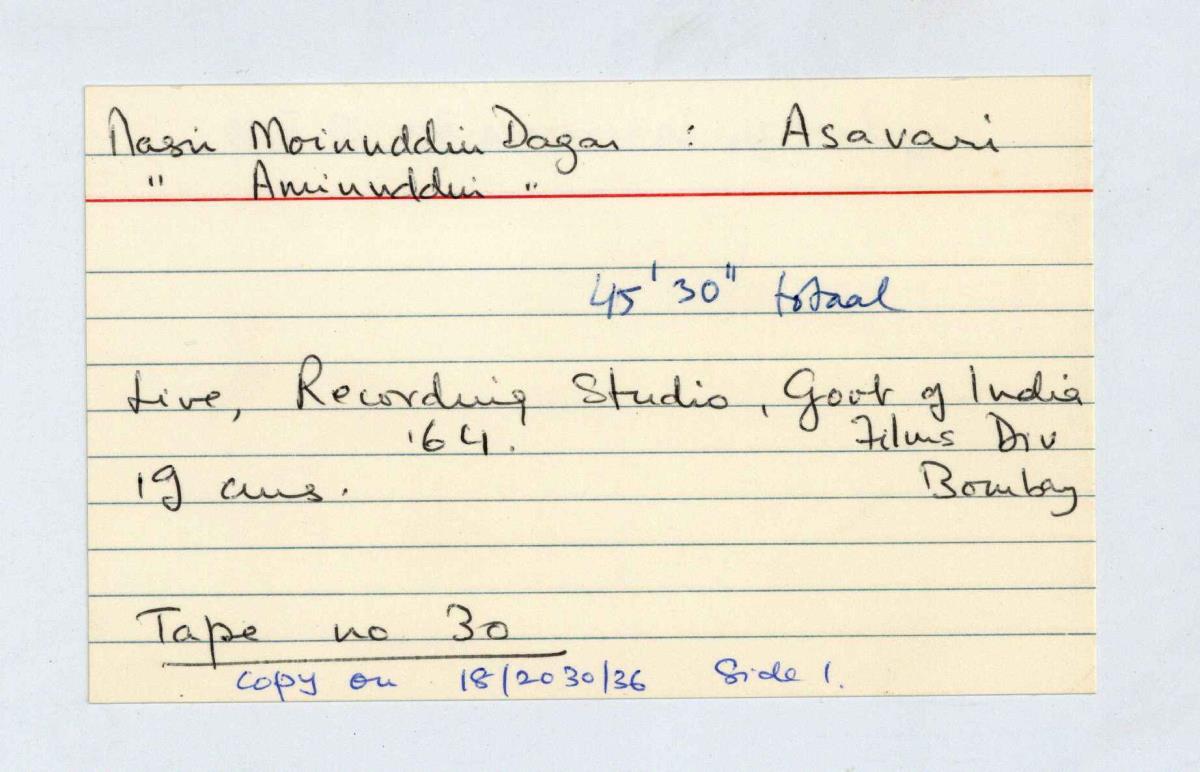 Nasir Moinuddin Dagar : Asavari
" Aminuddin "
45' 30" totaal
Live, Recording Studio, Govt of India
'64. Films Div
19 cms. Bombay
Tape no 30
copy on 18/2030/36 Side 1.